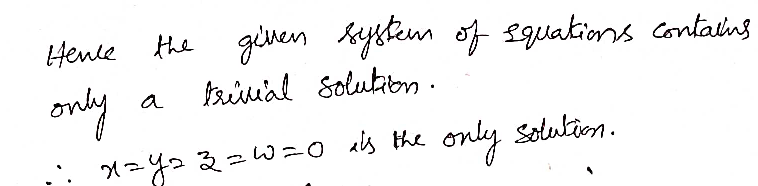 Hence the given system of equations contains
only a trivial solution.
∴ x=y=z=w=0 is the only solution.